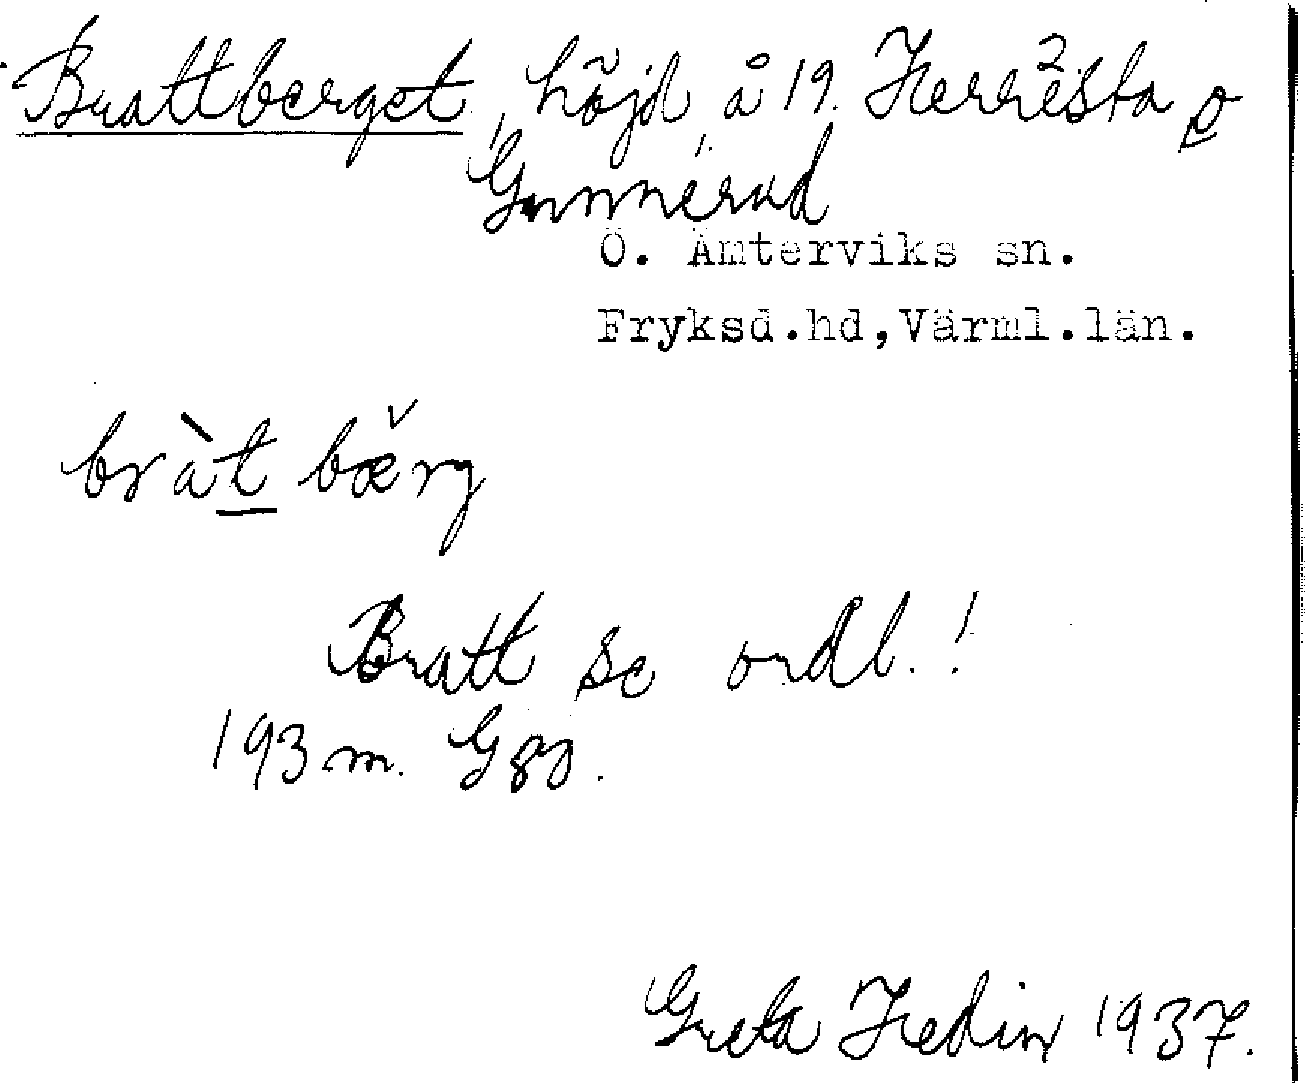 Brattberget, höjd å 19. Herrësta o
Gunnerud
Ö. Ämterviks sn.
Fryksd.hd,Värml.län.
bràt bæ̌rg
Bratt se ordl.!
193 m. G
Greta Hedin 1937.